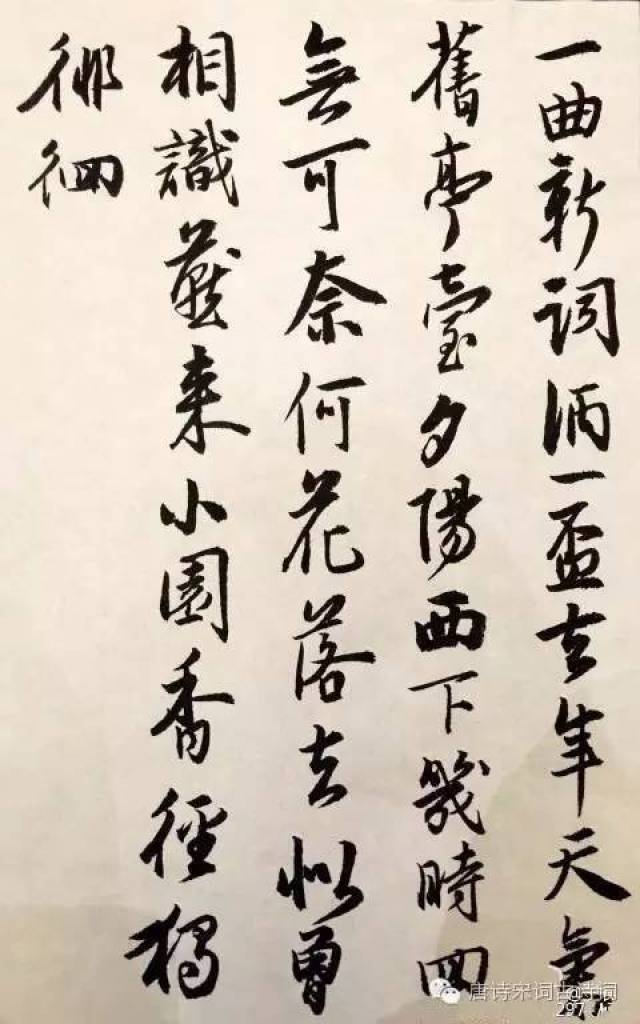 一曲新詞酒一盃去年天氣
舊亭臺夕陽西下幾時回
無可奈何花落去似曾
相識燕来小園香徑獨
徘徊
唐诗宋词古诗词
297